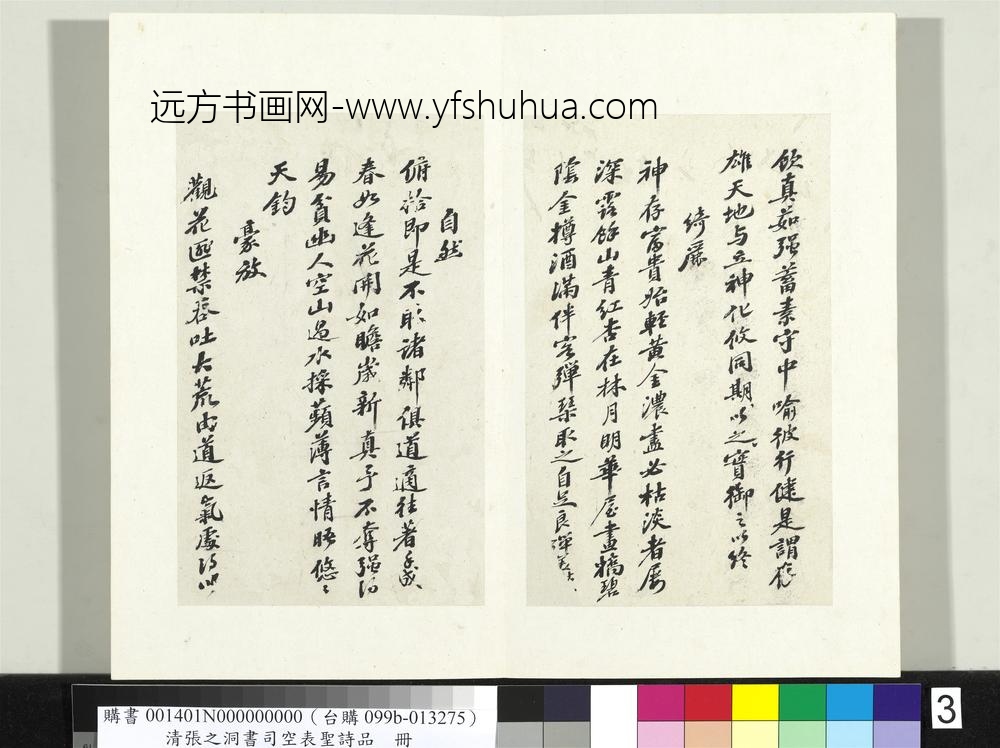 远方书画网-www.yfshuhua.com
飲真茹强蓄素守中喻彼行健是謂存
雄天地与立神化攸同期以之實御之以終
綺麗
神存富貴始輕黄金濃盡必枯淡者屡
深露餘山青红杏在林月明華屋畫橋碧
陰金樽酒滿伴客彈琴取之自足良殫美
自然
俯拾即是不取諸鄰俱道適往著手成
春如逢花開如瞻歲新真予不奪强得
易貧幽人空山過水採蘋薄言情晤悠〻
天鈞
豪放
觀花匪禁吞吐大荒由道返氣處得以
購書 001401N000000000（台購 099b-013275）
清張之洞書司空表聖詩品　冊
3